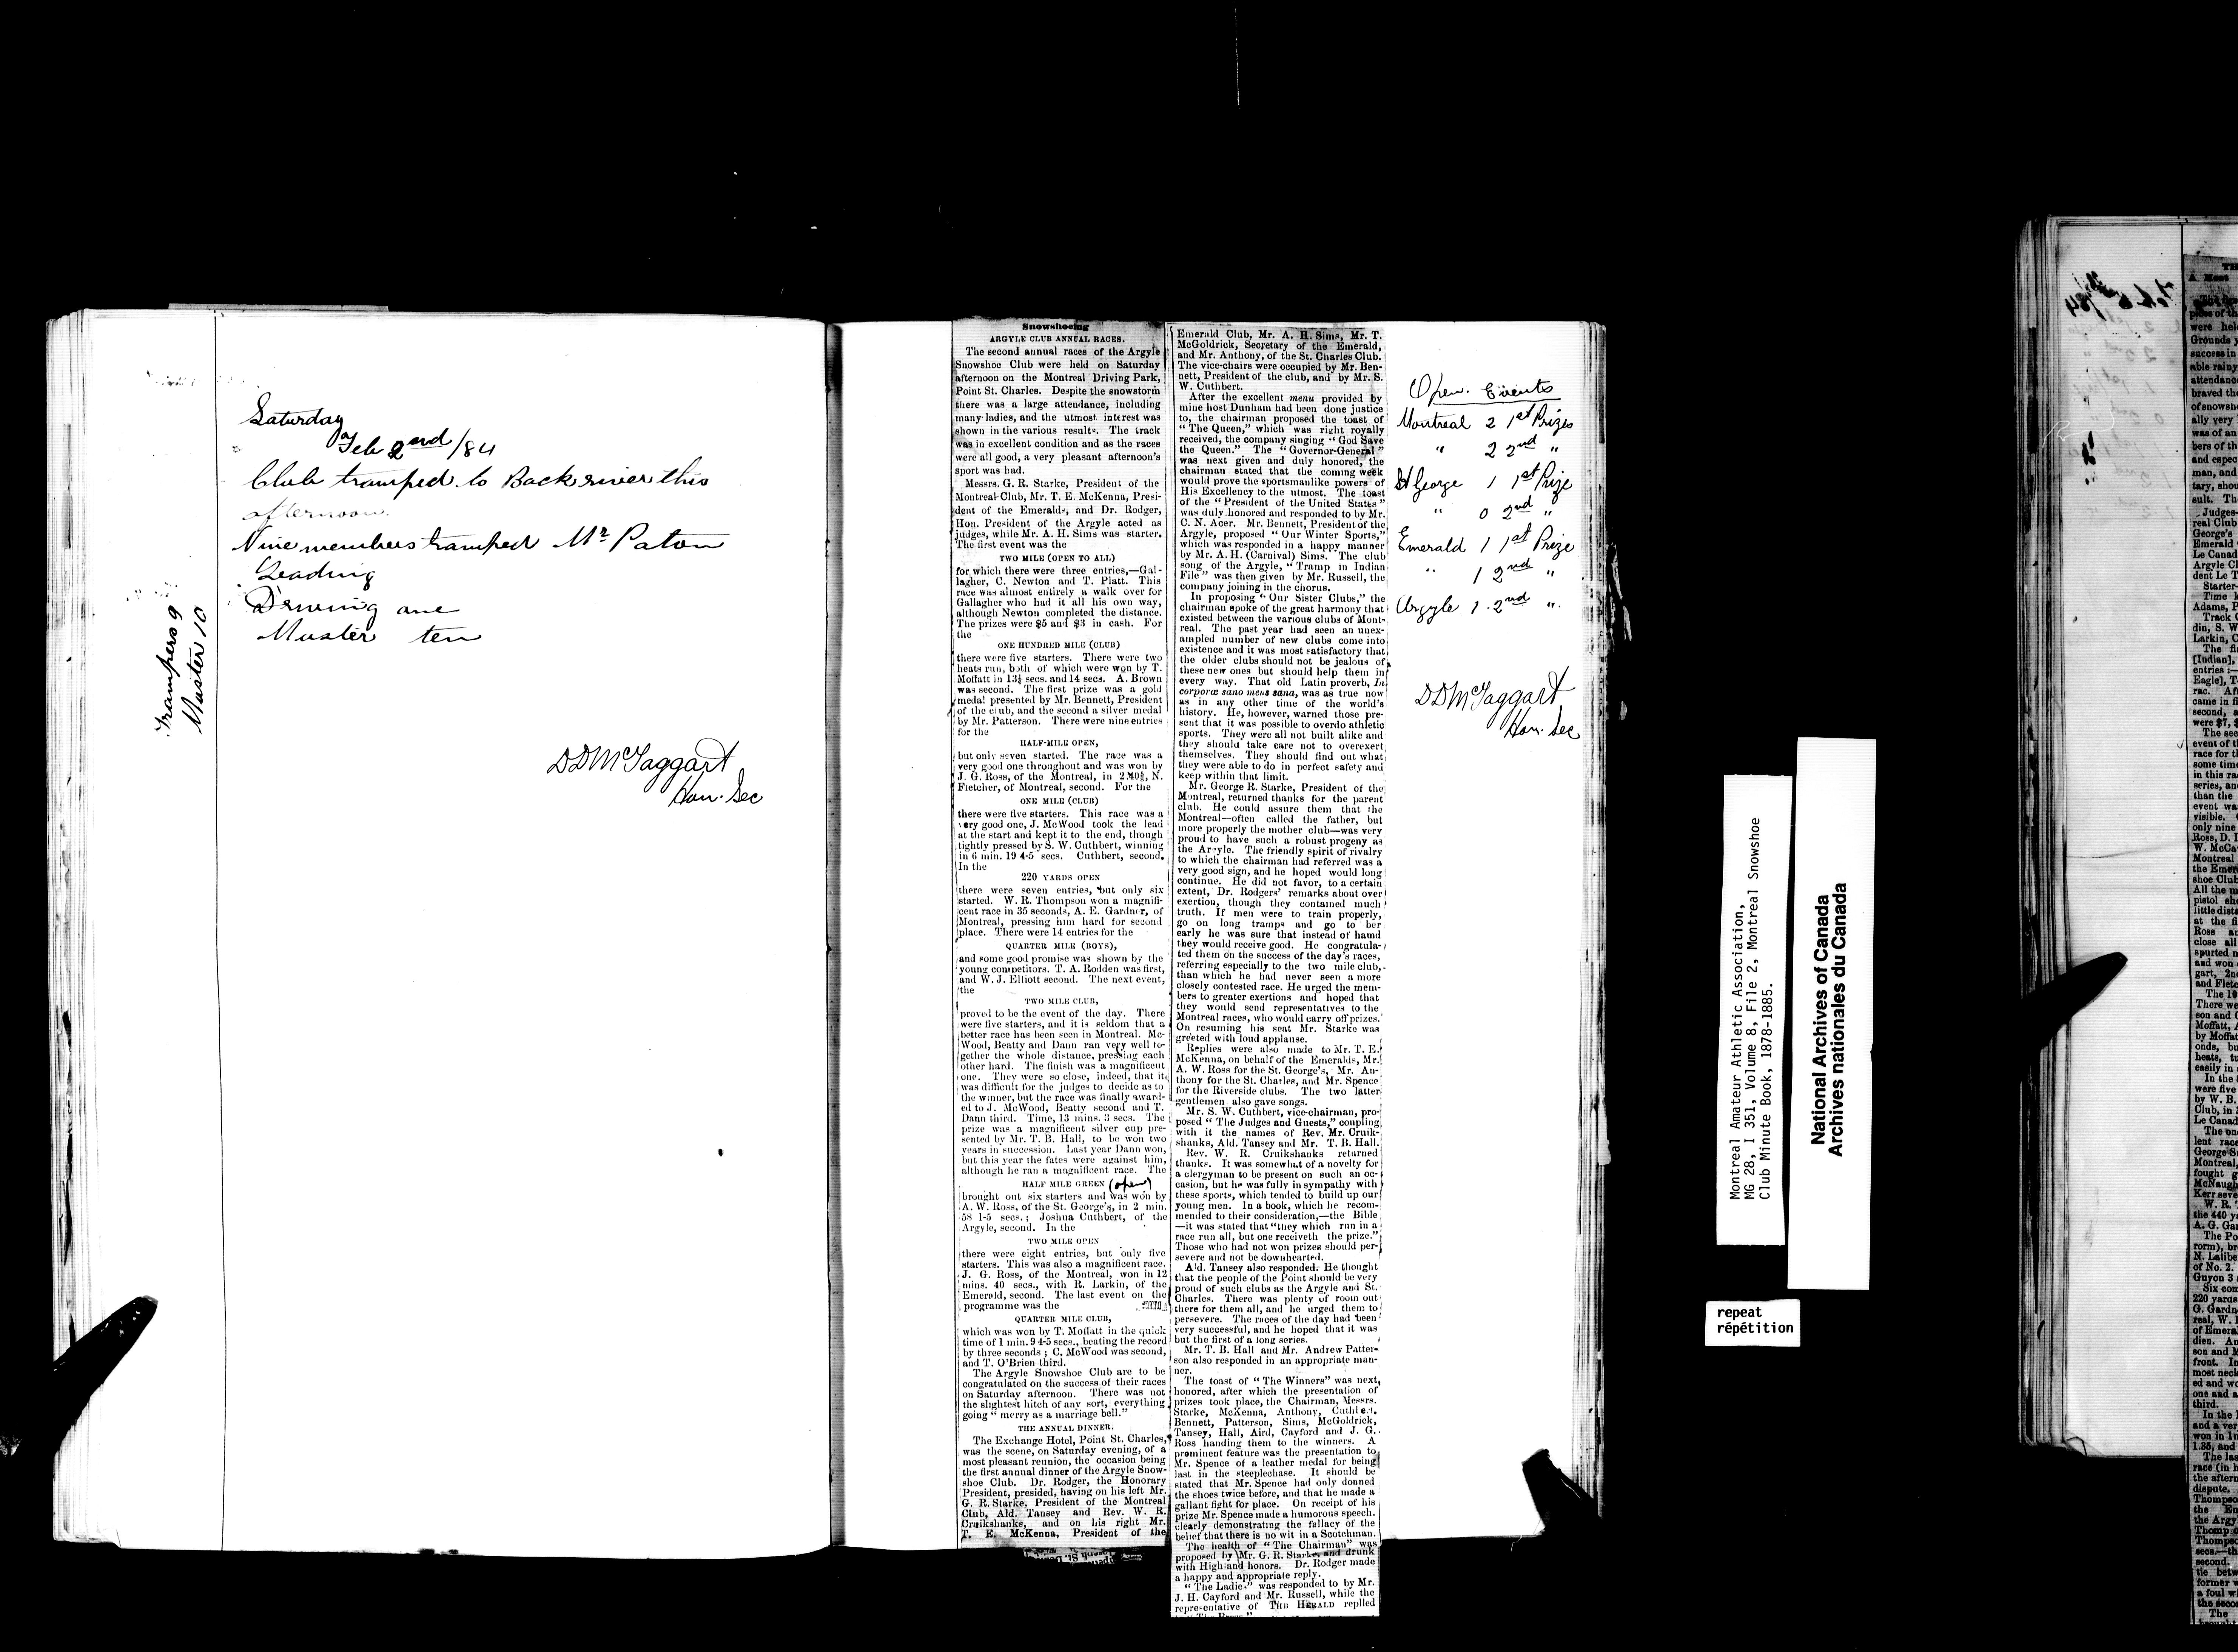 Saturday
Feb 2nd /84
Club tramped to Back river this
afternoon.
Nine members tramped Mr Paton
Leading
Driving one
Muster ten
Trampers 9
Muster 10
DDMcTaggart
Hon. Sec
Snowshoeing
ARGYLE CLUB ANNUAL RACES.
The second annual races of the Argyle
Snowshoe Club were held on Saturday
afternoon on the Montreal Driving Park,
Point St. Charles. Despite the snowstorm
there was a large attendance, including
many ladies, and the utmost interest was
shown in the various results. The track
was in excellent condition and as the races
were all good, a very pleasant afternoon's
sport was had.
Messrs. G. R. Starke, President of the
Montreal Club, Mr. T. E. McKenna, Presi-
dent of the Emeralds, and Dr. Rodger,
Hon. President of the Argyle acted as
judges, while Mr. A. H. Sims was starter.
The first event was the
TWO MILE (OPEN TO ALL)
for which there were three entries,—Gal-
lagher, C. Newton and T. Platt. This
race was almost entirely a walk over for
Gallagher who had it all his own way,
although Newton completed the distance.
The prizes were $5 and $3 in cash. For
the
ONE HUNDRED MILE (CLUB)
there were five starters. There were two
heats run, both of which were won by T.
Moffatt in 13¼ secs. and 14 secs. A. Brown
was second. The first prize was a gold
medal presented by Mr. Bennett, President
of the club, and the second a silver medal
by Mr. Patterson. There were nine entries
for the
HALF-MILE OPEN,
but only seven started. The race was a
very good one throughout and was won by
J. G. Ross, of the Montreal, in N.
Fletcher, of Montreal, second. For the
ONE MILE (CLUB)
there were five starters. This race was a
very good one, J. McWood took the lead
at the start and kept it to the end, though
tightly pressed by S. W. Cuthbert, winning
in 6 min. 19 4-5 secs. Cuthbert, second.
In the
220 YARDS OPEN
there were seven entries, but only six
started. W. R. Thompson won a magnifi-
cent race in 35 seconds, A. E. Gardner, of
Montreal, pressing him hard for second
place. There were 14 entries for the
QUARTER MILE (BOYS),
and some good promise was shown by the
young competitors. T. A. Rodden was first,
and W. J. Elliott second. The next event,
the
TWO MILE CLUB,
proved to be the event of the day. There
were five starters, and it is seldom that a
better race has been seen in Montreal. Mc-
Wood, Beatty and Dann ran very well to-
gether the whole distance, pressing each
other hard. The finish was a magnificent
one. They were so close, indeed, that it
was difficult for the judges to decide as to
the winner, but the race was finally award-
ed to J. McWood, Beatty second and T.
Dann third. Time, 13 mins. 3 secs. The
prize was a magnificent silver cup pre-
sented by Mr. T. B. Hall, to be won two
years in succession. Last year Dann won,
but this year the fates were against him,
although he ran a magnificent race. The
HALF MILE GREEN (open)
brought out six starters and was won by
A. W. Ross, of the St. George's, in 2 min.
58 1-5 secs.; Joshua Cuthbert, of the
Argyle, second. In the
TWO MILE OPEN
there were eight entries, but only five
starters. This was also a magnificent race.
J. G. Ross, of the Montreal, won in 12
mins. 40 secs., with R. Larkin, of the
Emerald, second. The last event on the
programme was the
QUARTER MILE CLUB,
which was won by T. Moffatt in the quick
time of 1 min. 9 4-5 secs., beating the record
by three seconds; C. McWood was second,
and T. O'Brien third.
The Argyle Snowshoe Club are to be
congratulated on the success of their races
on Saturday afternoon. There was not
the slightest hitch of any sort, everything
going "merry as a marriage bell."
THE ANNUAL DINNER.
The Exchange Hotel, Point St. Charles,
was the scene, on Saturday evening, of a
most pleasant reunion, the occasion being
the first annual dinner of the Argyle Snow-
shoe Club. Dr. Rodger, the Honorary
President, presided, having on his left Mr.
G. R. Starke, President of the Montreal
Club, Ald. Tansey and Rev. W. R.
Cruikshanks, and on his right Mr.
T. E. McKenna, President of the
Emerald Club, Mr. A. H. Sims, Mr. T.
McGoldrick, Secretary of the Emerald,
and Mr. Anthony, of the St. Charles Club.
The vice-chairs were occupied by Mr. Ben-
nett, President of the club, and by Mr. S.
W. Cuthbert.
After the excellent menu provided by
mine host Dunham had been done justice
to, the chairman proposed the toast of
"The Queen," which was right royally
received, the company singing "God Save
the Queen." The "Governor-General"
was next given and duly honored, the
chairman stated that the coming week
would prove the sportsmanlike powers of
His Excellency to the utmost. The toast
of the "President of the United States"
was duly honored and responded to by Mr.
C. N. Acer. Mr. Bennett, President of the
Argyle, proposed "Our Winter Sports,"
which was responded in a happy manner
by Mr. A. H. (Carnival) Sims. The club
song of the Argyle, "Tramp in Indian
File" was then given by Mr. Russell, the
company joining in the chorus.
In proposing "Our Sister Clubs," the
chairman spoke of the great harmony that
existed between the various clubs of Mont-
real. The past year had seen an unex-
ampled number of new clubs come into
existence and it was most satisfactory that
the older clubs should not be jealous of
these new ones but should help them in
every way. That old Latin proverb, In
corporœ sano mens sana, was as true now
as in any other time of the world's
history. He, however, warned those pre-
sent that it was possible to overdo athletic
sports. They were all not built alike and
they should take care not to overexert
themselves. They should find out what
they were able to do in perfect safety and
keep within that limit.
Mr. George R. Starke, President of the
Montreal, returned thanks for the parent
club. He could assure them that the
Montreal—often called the father, but
more properly the mother club—was very
proud to have such a robust progeny as
the Argyle. The friendly spirit of rivalry
to which the chairman had referred was a
very good sign, and he hoped would long
continue. He did not favor, to a certain
extent, Dr. Rodgers' remarks about over
exertion, though they contained much
truth. If men were to train properly,
go on long tramps and go to ber
early he was sure that instead of hamd
they would receive good. He congratula-
ted them on the success of the day's races,
referring especially to the two mile club,
than which he had never seen a more
closely contested race. He urged the mem-
bers to greater exertions and hoped that
they would send representatives to the
Montreal races, who would carry off prizes.
On resuming his seat Mr. Starke was
greeted with loud applause.
Replies were also made to Mr. T. E.
McKenna, on behalf of the Emeralds, Mr.
A. W. Ross for the St. George's, Mr. An-
thony for the St. Charles, and Mr. Spence
for the Riverside clubs. The two latter
gentlemen also gave songs.
Mr. S. W. Cuthbert, vice-chairman, pro-
posed "The Judges and Guests," coupling
with it the names of Rev. Mr. Cruik-
shanks, Ald. Tansey and Mr. T. B. Hall.
Rev. W. R. Cruikshanks returned
thanks. It was somewhat of a novelty for
a clergyman to be present on such an oc-
casion, but he was fully in sympathy with
these sports, which tended to build up our
young men. In a book, which he recom-
mended to their consideration,—the Bible
—it was stated that "they which run in a
race run all, but one receiveth the prize."
Those who had not won prizes should per-
severe and not be downhearted.
Ald. Tansey also responded. He thought
that the people of the Point should be very
proud of such clubs as the Argyle and St.
Charles. There was plenty of room out
there for them all, and he urged them to
persevere. The races of the day had been
very successful, and he hoped that it was
but the first of a long series.
Mr. T. B. Hall and Mr. Andrew Patter-
son also responded in an appropriate man-
ner.
The toast of "The Winners" was next
honored, after which the presentation of
prizes took place, the Chairman, Messrs.
Starke, McKenna, Anthony, Cuthbert,
Bennett, Patterson, Sims, McGoldrick,
Tansey, Hall, Aird, Cayford and J. G.
Ross handing them to the winners. A
prominent feature was the presentation to
Mr. Spence of a leather medal for being
last in the steeplechase. It should be
stated that Mr. Spence had only donned
the shoes twice before, and that he made a
gallant fight for place. On receipt of his
prize Mr. Spence made a humorous speech,
clearly demonstrating the fallacy of the
belief that there is no wit in a Scotchman.
The health of "The Chairman" was
proposed by Mr. G. R. Starke, and drunk
with Highland honors. Dr. Rodger made
a happy and appropriate reply.
"The Ladies" was responded to by Mr.
J. H. Cayford and Mr. Russell, while the
representative of THE HERALD replied
Open. Events
Montreal 2 1st Prizes
" 2 2nd "
St George 1 1st Prize
" 0 2nd "
Emerald 1 1st Prize
" 1 2nd "
Argyle 1 2nd "
DDMcTaggart
Hon. Sec
Montreal Amateur Athletic Association,
MG 28, I 351, Volume 8, File 2, Montreal Snowshoe
Club Minute Book, 1878-1885.
National Archives of Canada
Archives nationales du Canada
repeat
répétition